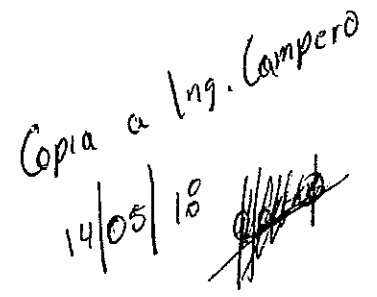 Copia a Ing. Campero
14/05/18